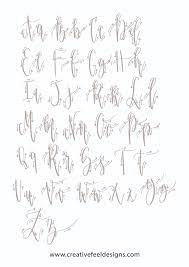 Aa Bb Cc Dd
Ee Ff Gg Hh
Ii Jj Kk Ll
Mm Nn Oo Pp
Qq Rr Ss Tt
Uu Vv Ww Xx Yy
Zz
www.creativefeeldesigns.com